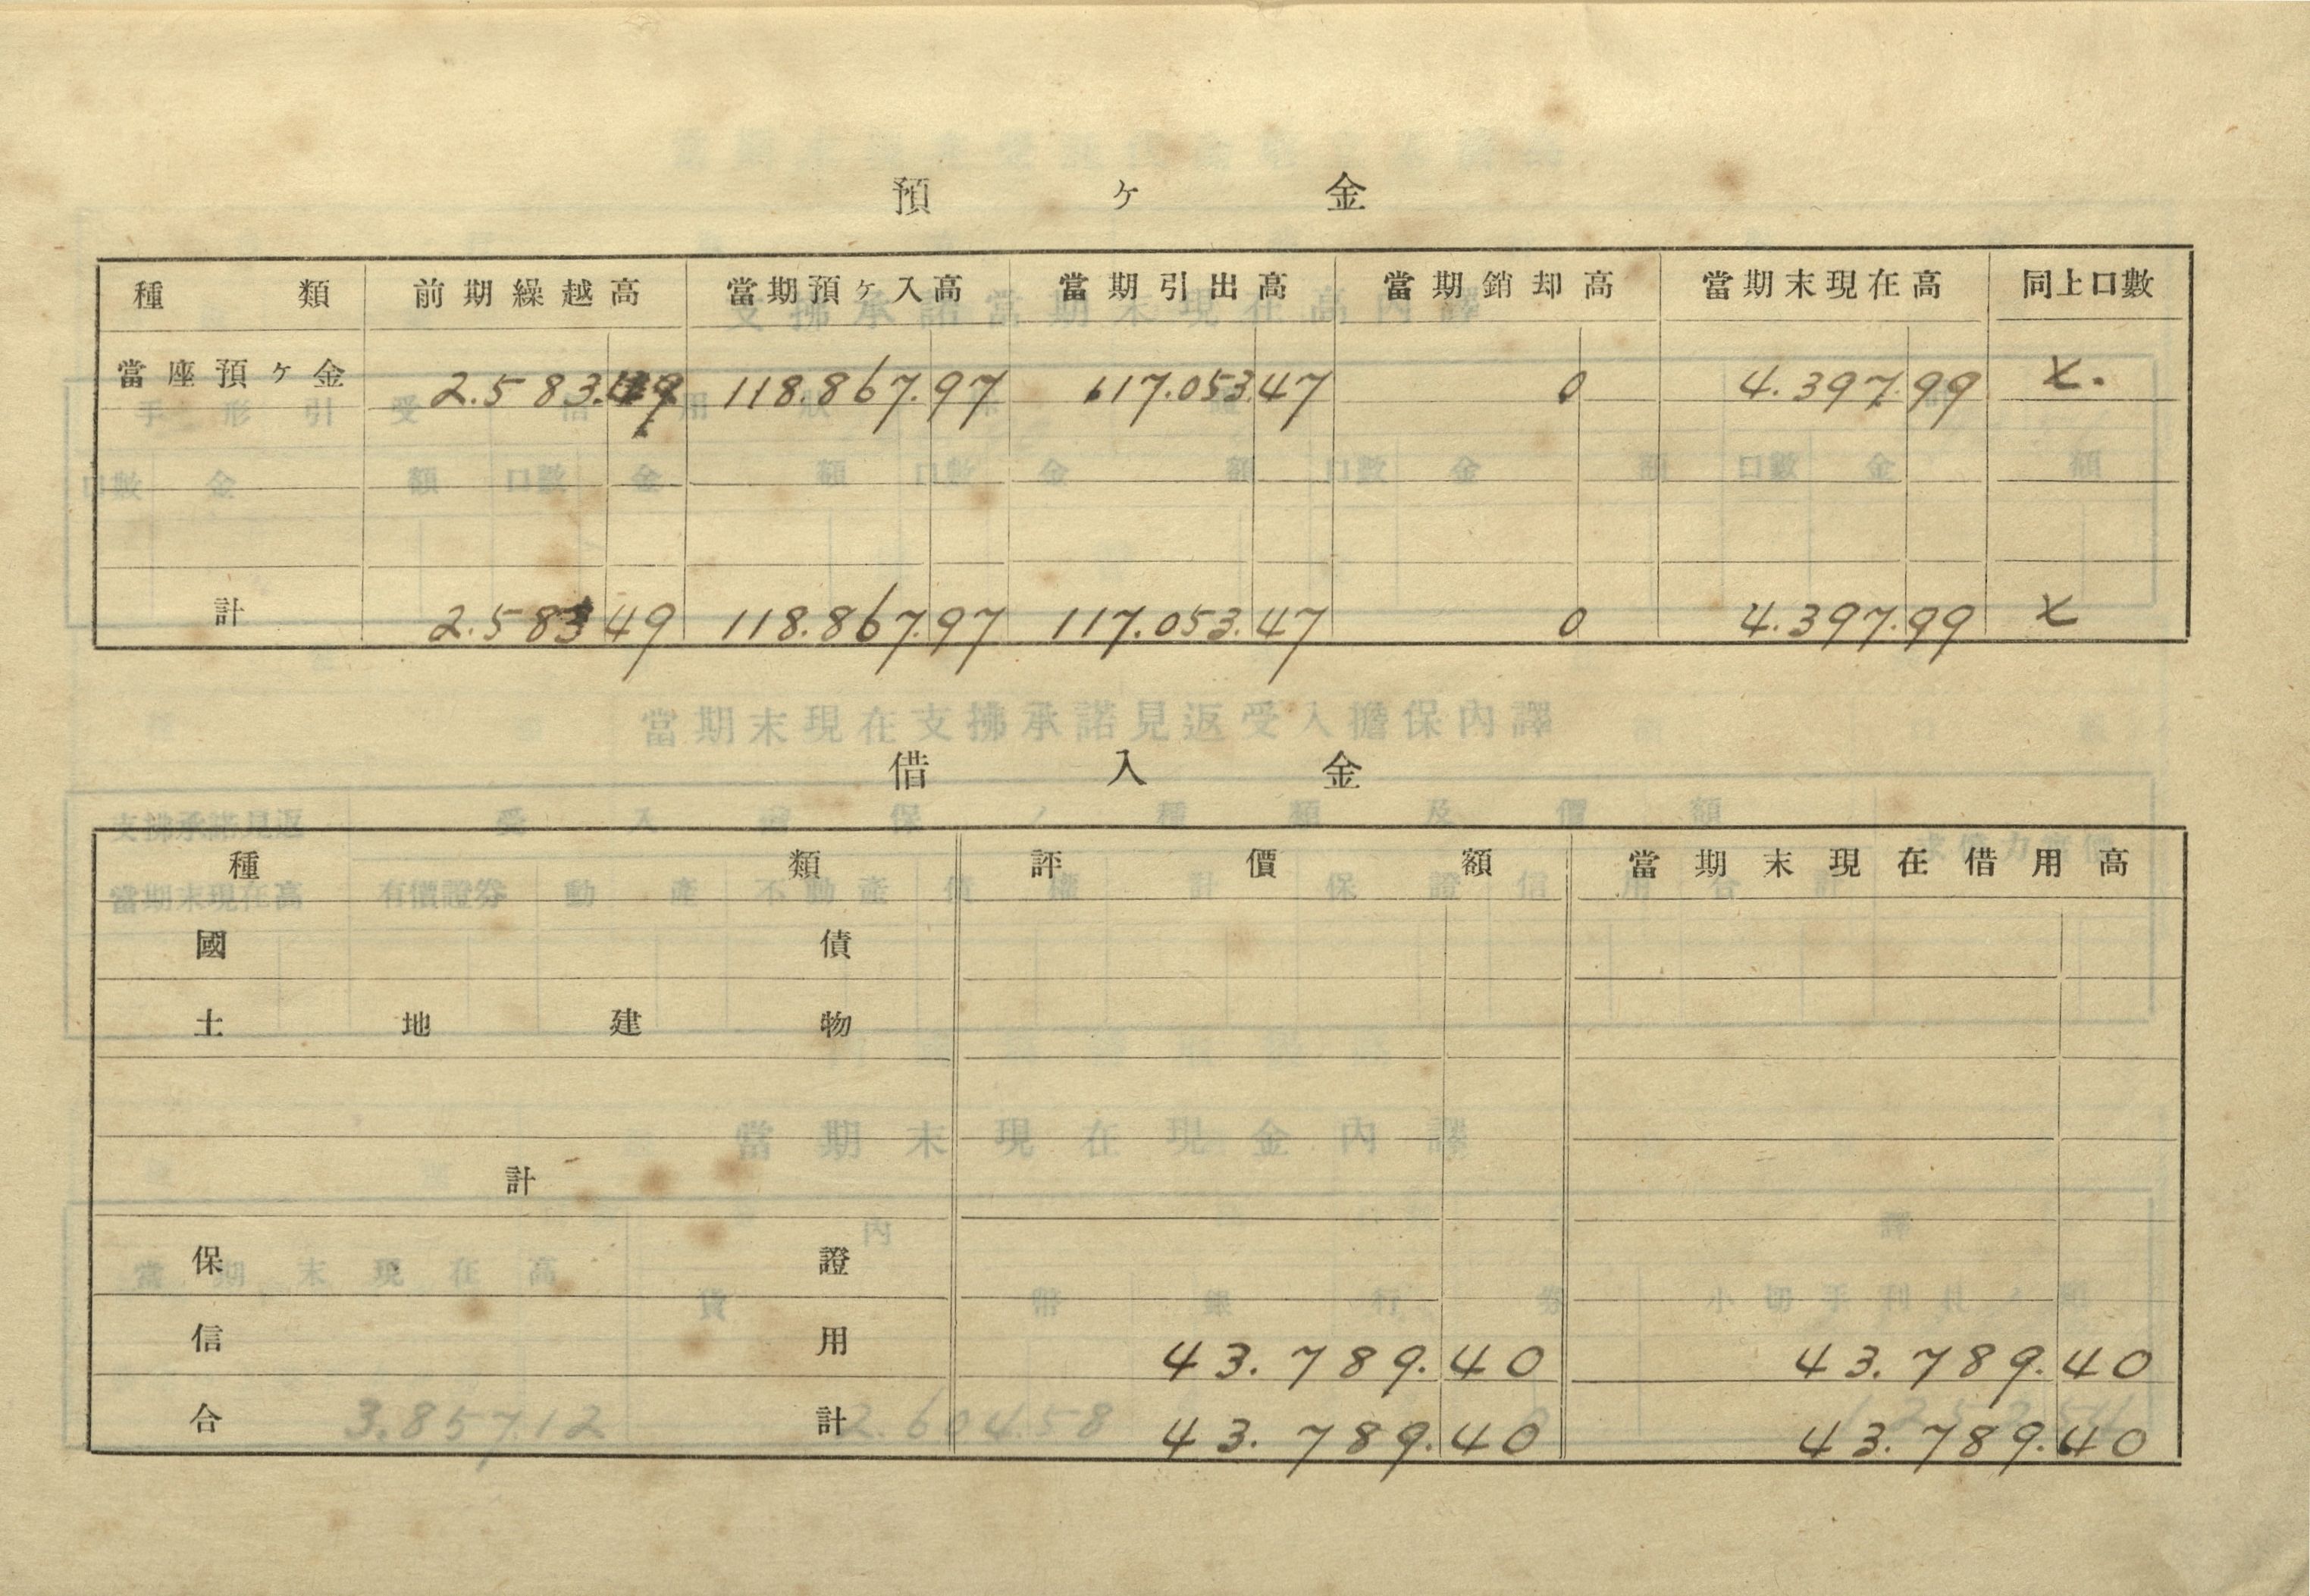 預ヶ金
種類 前期繰越高 當期預ヶ入高 當期引出高 當期銷却高 當期末現在高 同上口數
當座預ヶ金 2.583.49 118.867.97 117.053.47 0 4.397.99
計 2.583 49 118.867.97 117.053.47 0 4.397.99
借入金
種類 評價額 當期末現在借用高
國債
土地建物
計
保證
信用 43.789.40 43.789.40
合計 43.789.40 43.789.40